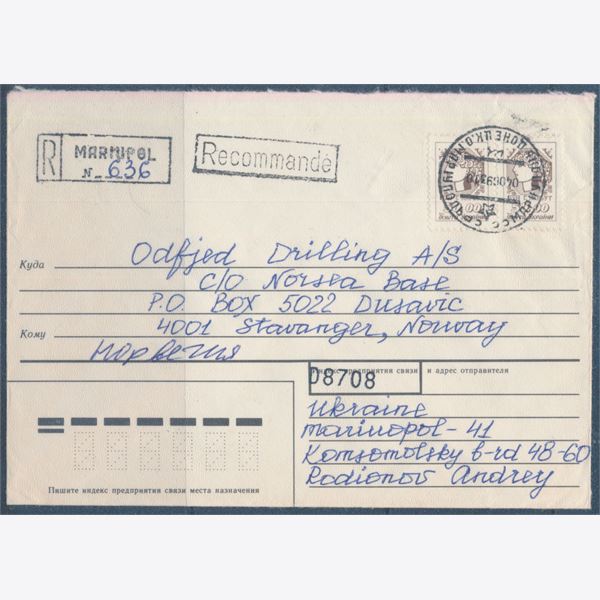 R MARIUPOL
N- 636
Recommandé
Куда
Odfjed Drilling A/S
C/O Norsea Base
P.O. BOX 5022 Dusavic
Кому
4001 Stavanger, Norway
Норвегия
Индекс предприятия связи и адрес отправителя
08708
Ukraine
mariuopol - 41
Komsomolsky b-rd 48-60
Rodionov Andrey
Пишите индекс предприятия связи места назначения